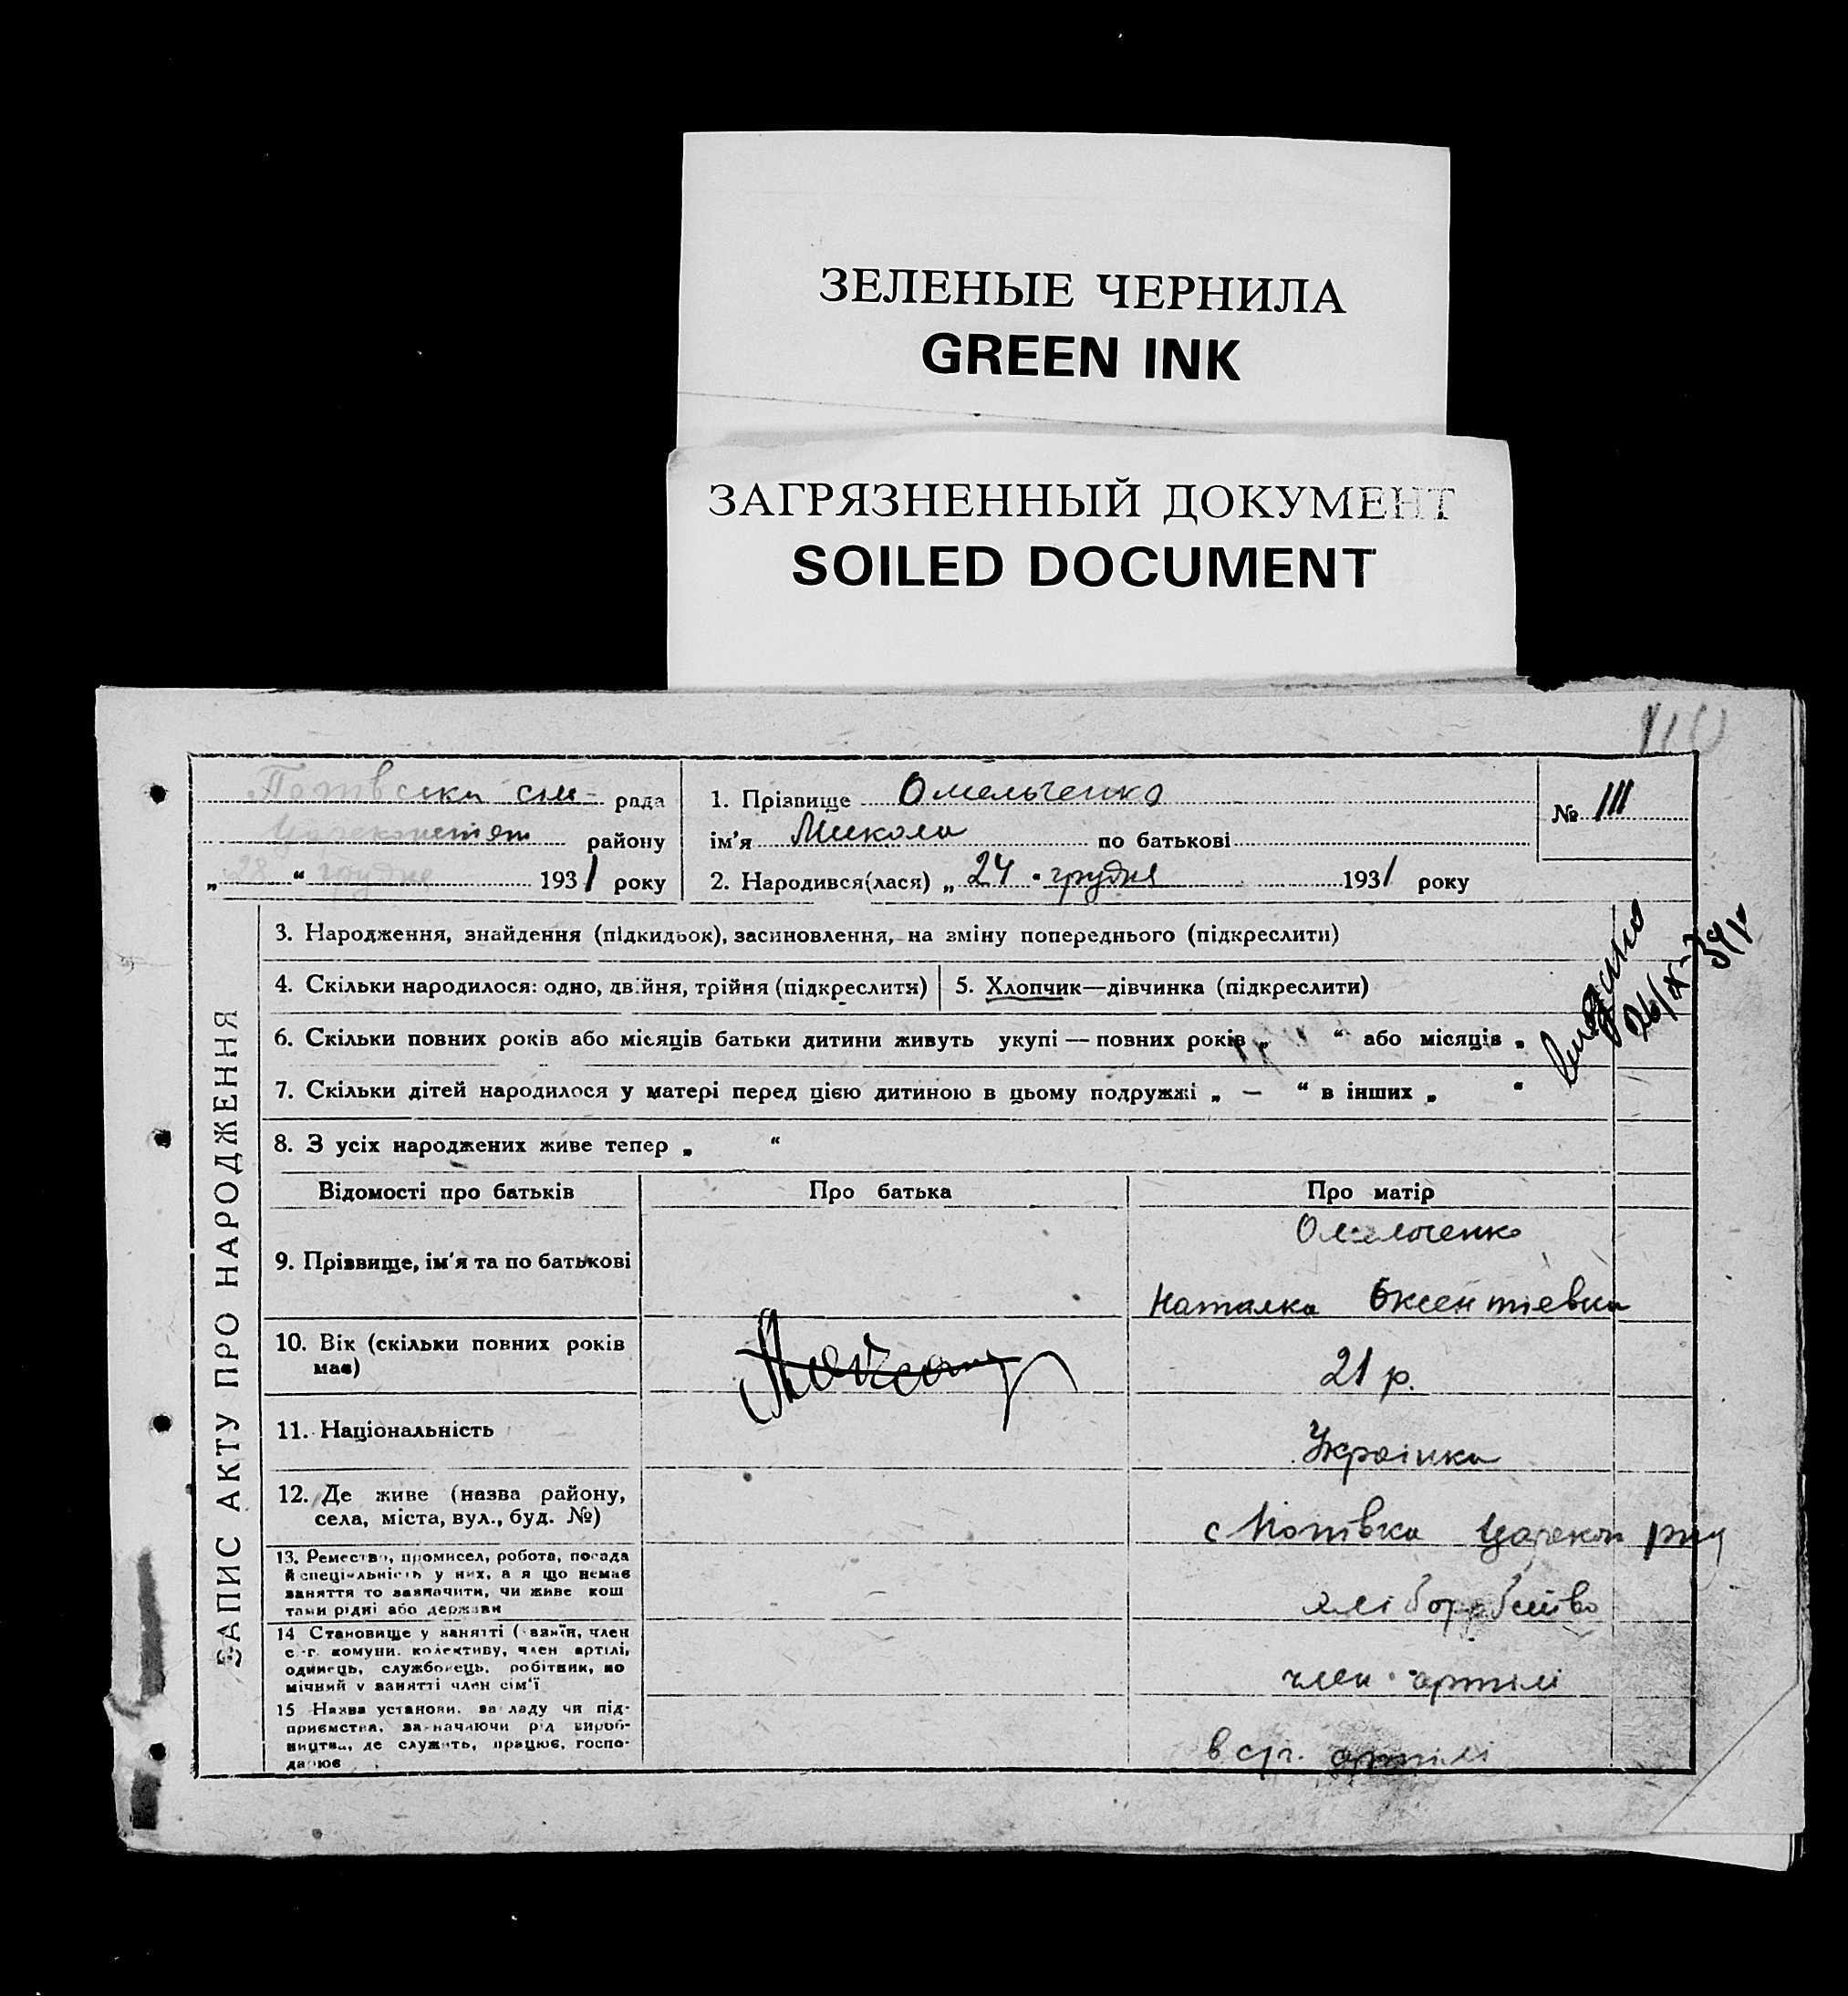 ЗЕЛЕНЫЕ ЧЕРНИЛА
GREEN INK
ЗАГРЯЗНЕННЫЙ ДОКУМЕНТ
SOILED DOCUMENT
110
сіль- рада
району
„ 28 “ грудня 1931 року
1. Прізвище Омельченко
ім'я Микола по батькові
2. Народився(лася) „ 24 “ грудня 1931 року
№ 111
ЗАПИС АКТУ ПРО НАРОДЖЕННЯ
3. Народження, знайдення (підкидьок), засиновлення, на зміну попереднього (підкреслити)
4. Скільки народилося: одно, двійня, трійня (підкреслити)
5. Хлопчик—дівчинка (підкреслити)
6. Скільки повних років або місяців батьки дитини живуть укупі — повних років „ “ або місяців „
7. Скільки дітей народилося у матері перед цією дитиною в цьому подружжі „ — “ в інших „ “
8. З усіх народжених живе тепер „ “
Відомості про батьків
Про батька
Про матір
9. Прізвище, ім'я та по батькові
Омельченко
Наталка Оксентіевна
10. Вік (скільки повних років
має)
21 р.
11. Національність
Украінка
12. Де живе (назва району,
села, міста, вул., буд. №)
с Царекон
13. Ремество, промисел, робота, посада
й спеціяльність у них, а я що немає
заняття то зазначити, чи живе кош
тами рідні або держави
хліборобство
14 Становище у занятті (хазяїн, член
с.-г. комуни, колективу, член артілі,
одинець, службовець, робітник, по
мічний у занятті член сім'ї
член артілі
15 Назва установи, закладу чи під-
приємства, зазначаючи рід вироб-
ництва, де служить, працює, госпо-
дарює
в с/г. артілі